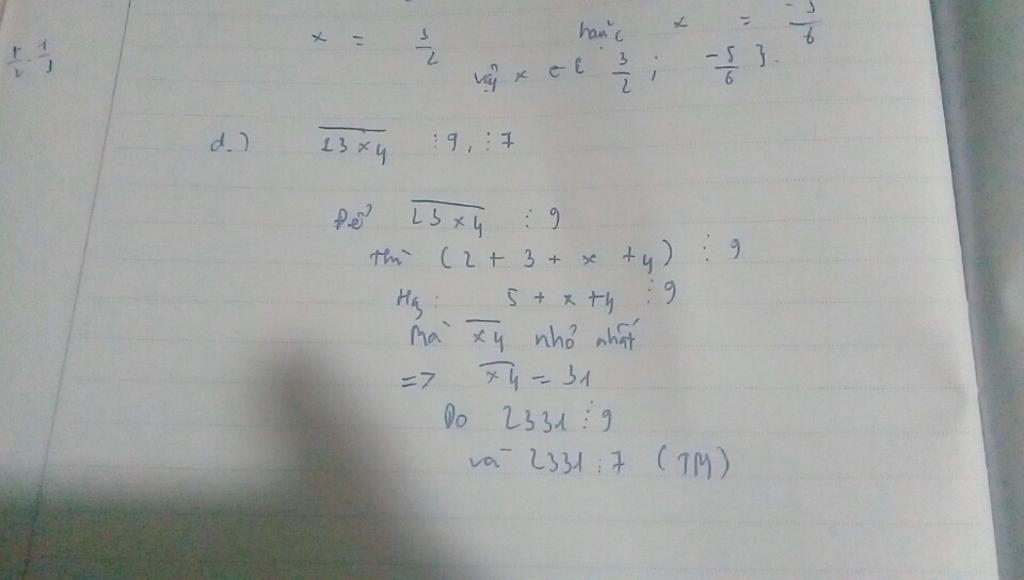 x = 3/2 hoặc x = -5/6
vậy x ∈ { 3/2 ; -5/6 }.
d.) 23x4 ⋮ 9, ⋮ 7
Để 23x4 ⋮ 9
thì (2 + 3 + x + y) ⋮ 9
Hay: 5 + x + y ⋮ 9
Mà xy nhỏ nhất
=> xy = 31
Do 2331 ⋮ 9
và 2331 ⋮ 7 (TM)